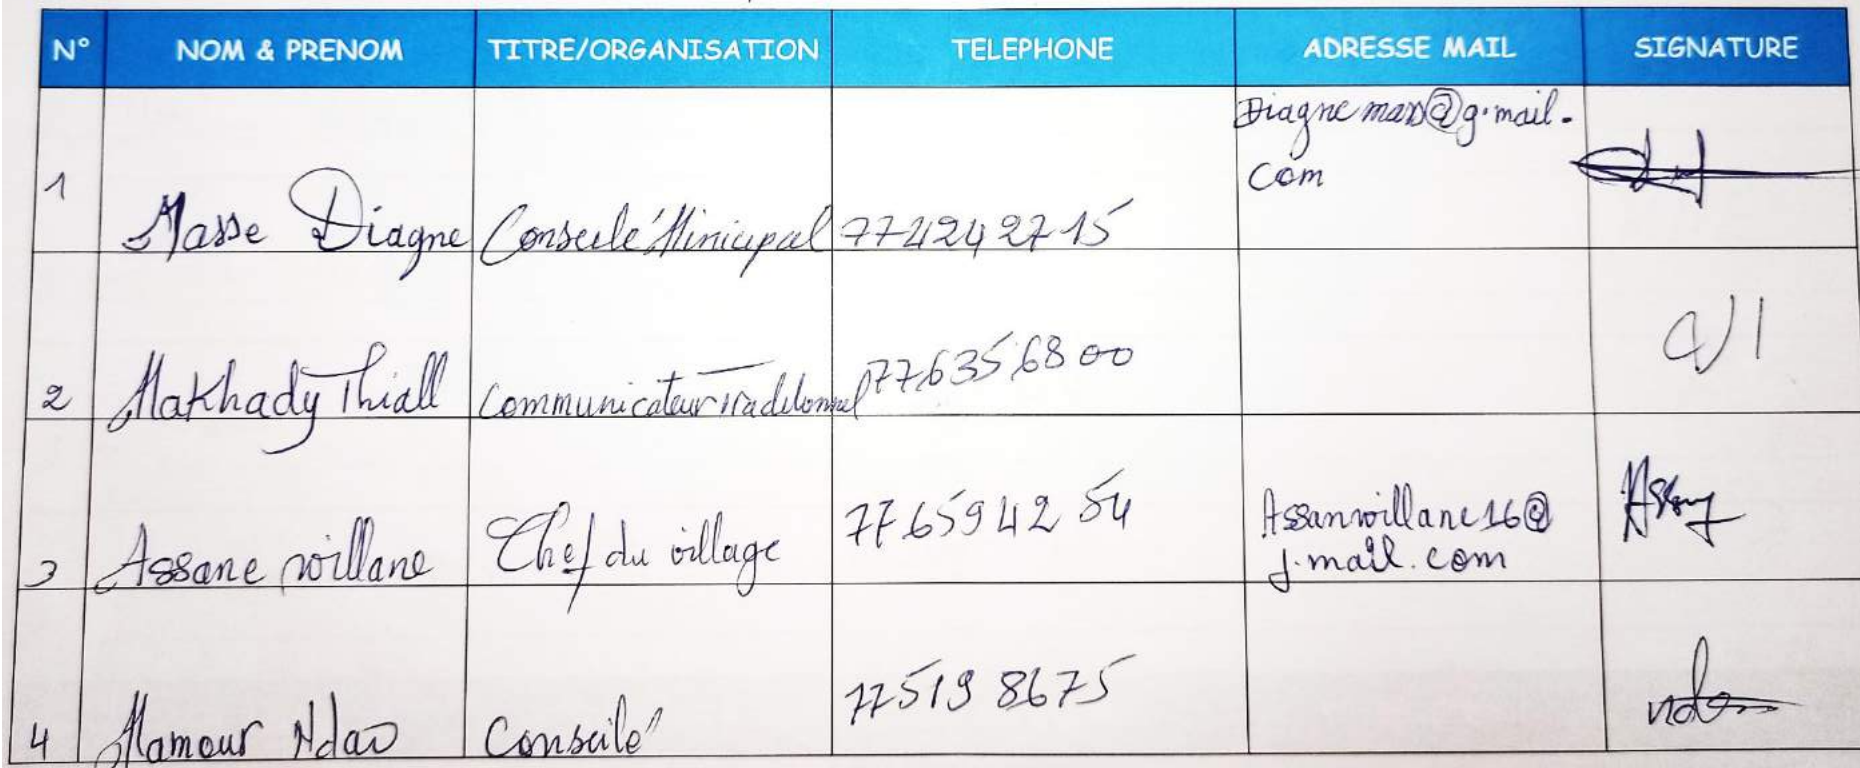 N° NOM & PRENOM TITRE/ORGANISATION TELEPHONE ADRESSE MAIL SIGNATURE
1 Masse Diagne Conseilé Minicipal 77 424 27 15 Diagnemass@g.mail.
com
2 Makhady Thiall Communicateur Traditionnel 77 635 68 00
3 Assane willane Chef du village 77 659 42 54 Assanwillane16@
j.mail.com
4 Mamour Ndao Conseilé 77 519 8675